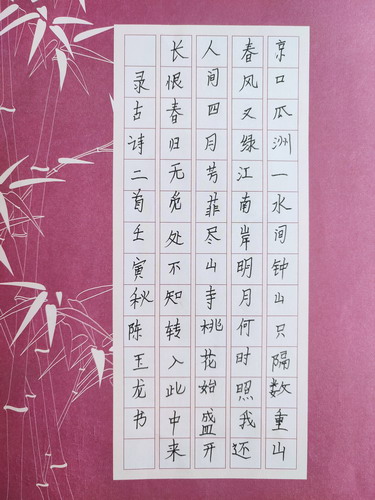 京口瓜洲一水间钟山只隔数重山
春风又绿江南岸明月何时照我还
人间四月芳菲尽山寺桃花始盛开
长恨春归无觅处不知转入此中来
录古诗二首壬寅秋陈玉龙书